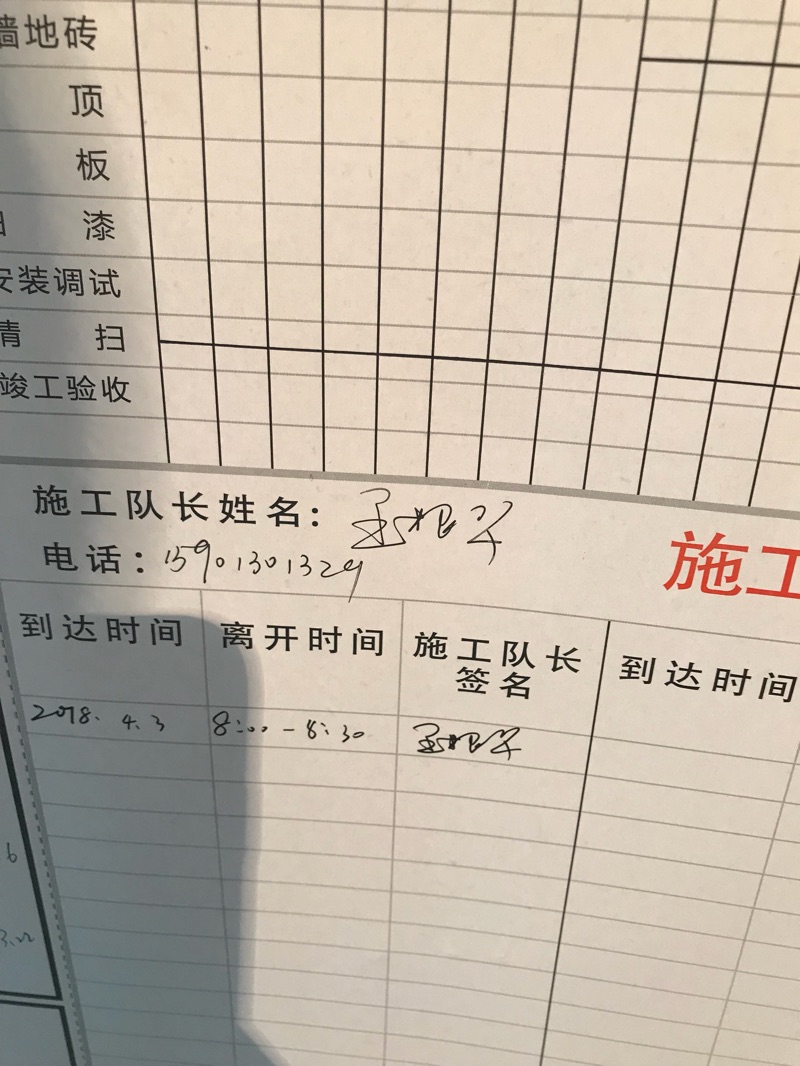 墙地砖
顶
板
漆
安装调试
清 扫
竣工验收
施工队长姓名:
电话:15901301329
施工
到达时间 离开时间 施工队长签名 到达时间
2018.4.3 8:00-8:30